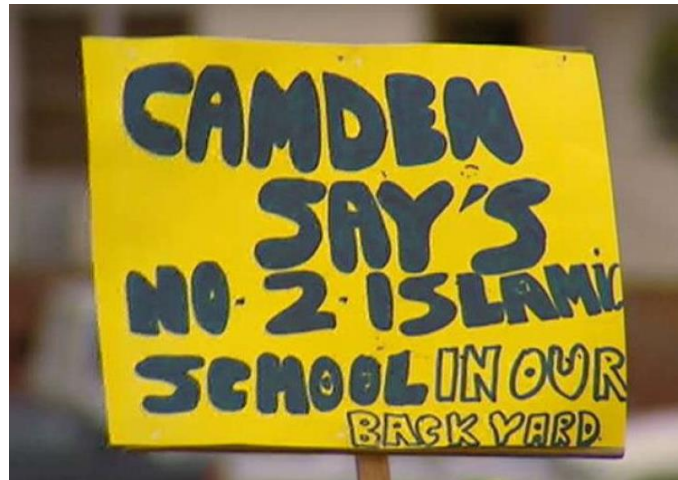 CAMDEN
SAY'S
NO-2-ISLAMIC
SCHOOL IN OUR
BACK YARD